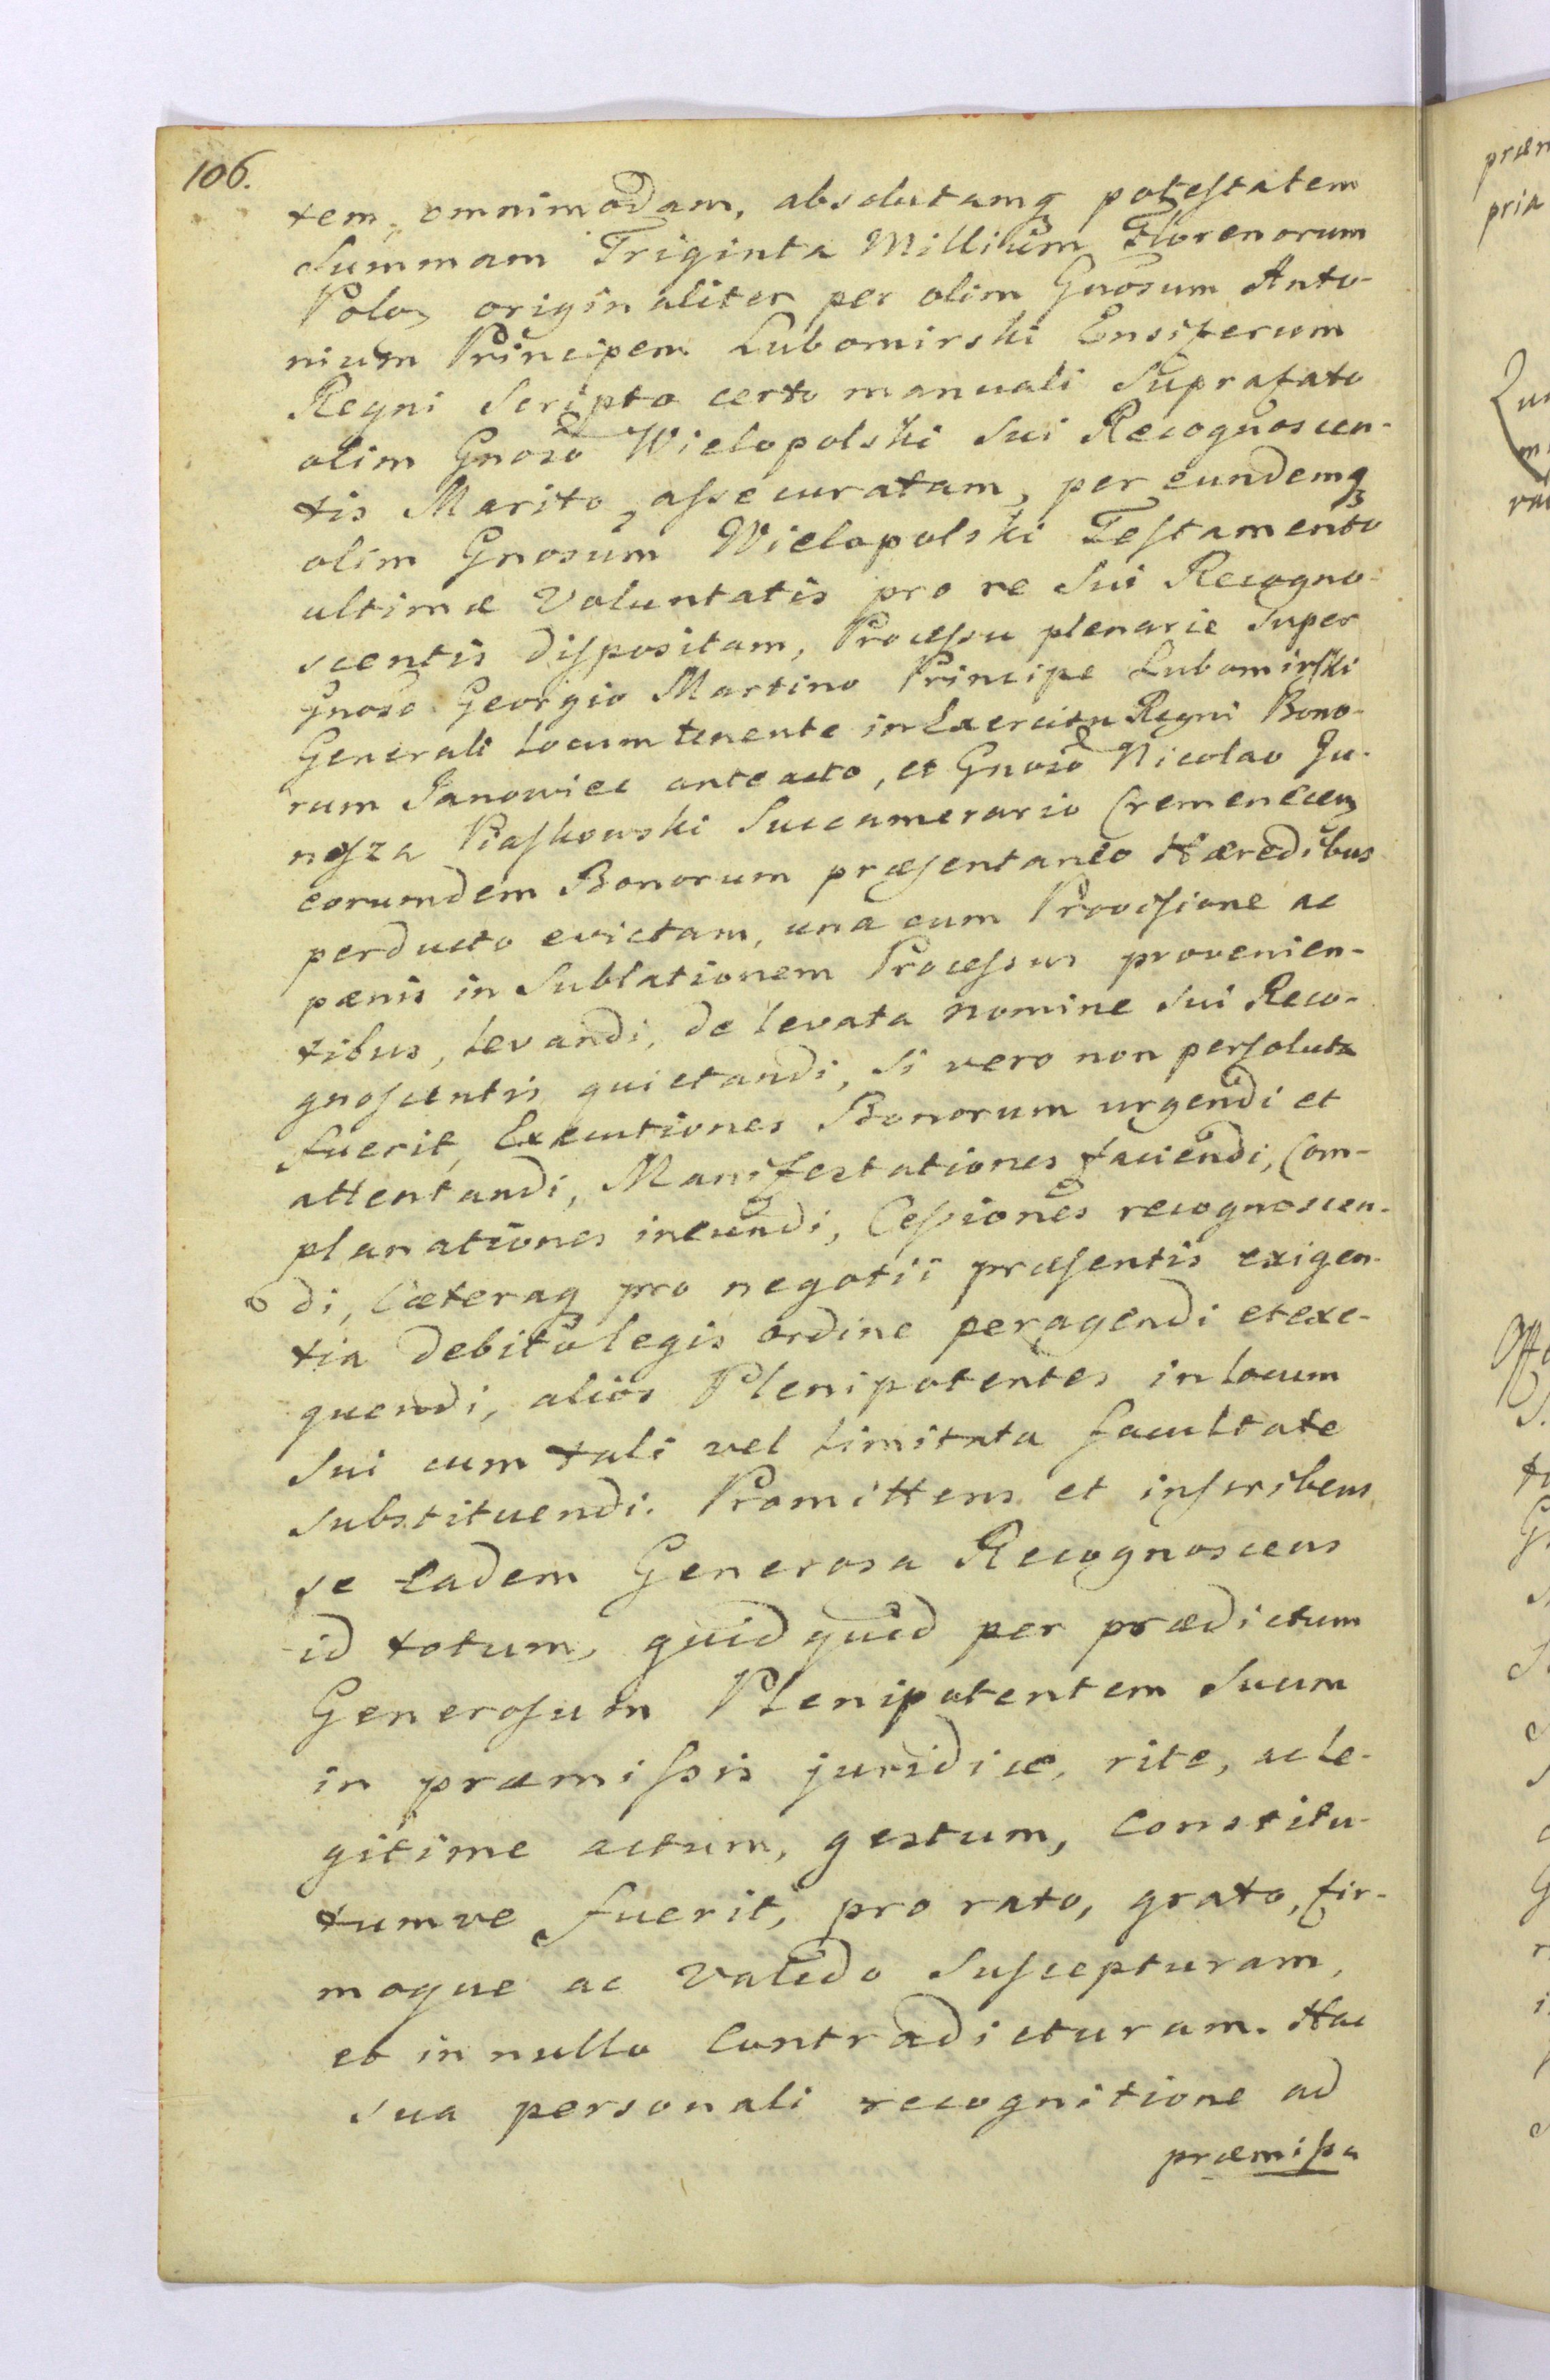 106.
tem, omnimodam, absolutamq potestatem
Summam Triginta Millium Florenorum
Polo, originaliter per olim Gnosum Anto-
nium Principem Lubomirski Ensiferum
Regni Scripto certo manuali Suprafato
olim Gnoso Wielopolski Sui Recognoscen-
tis Marito, assecuratam, per eundemq
olim Gnosum Wielopolski Testamento
ultimæ Voluntatis pro re Sui Recogno-
scentis dispositam, Processu plenarie Super
Gnoso Georgio Martino Principe Lubomirski
Generali Locumtenente in Exercitu Regni Bono-
rum Janowiec anteacto, et Gnoso Nicolao Ju-
nosza Piaskowski Succamerario Cremenecen
eorumdem Bonorum præsentaneo Hæredibus
perducto evictam, una cum Provisione ac
pænis in Sublationem Processus provenien-
tibus, levandi, de levata nomine Sui Reco-
gnoscentis quietandi, Si vero non persoluta
fuerit, Executiones Bonorum urgendi et
attentandi, Manifestationes faciendi, Com-
planationes ineundi, Cessiones recognoscen-
di, Cæteraq pro negotii præsentis exigen-
tia debito legis ordine peragendi et exe-
quendi, alios Plenipotentes in locum
Sui cum tali vel limitata facultate
substituendi. Promittens et inscribens
se Eadem Generosa Recognoscens
id totum, quidquid per prædictum
Generosum Plenipotentem Suum
in præmissis juridice, rite, ac le-
gitime actum, gestum, Constitu-
tumve fuerit, pro rato, grato, fir-
moque ac valido Suscepturam,
et in nullo Contradicturam. Hac
sua personali recognitione ad
præmissa
præm
pria